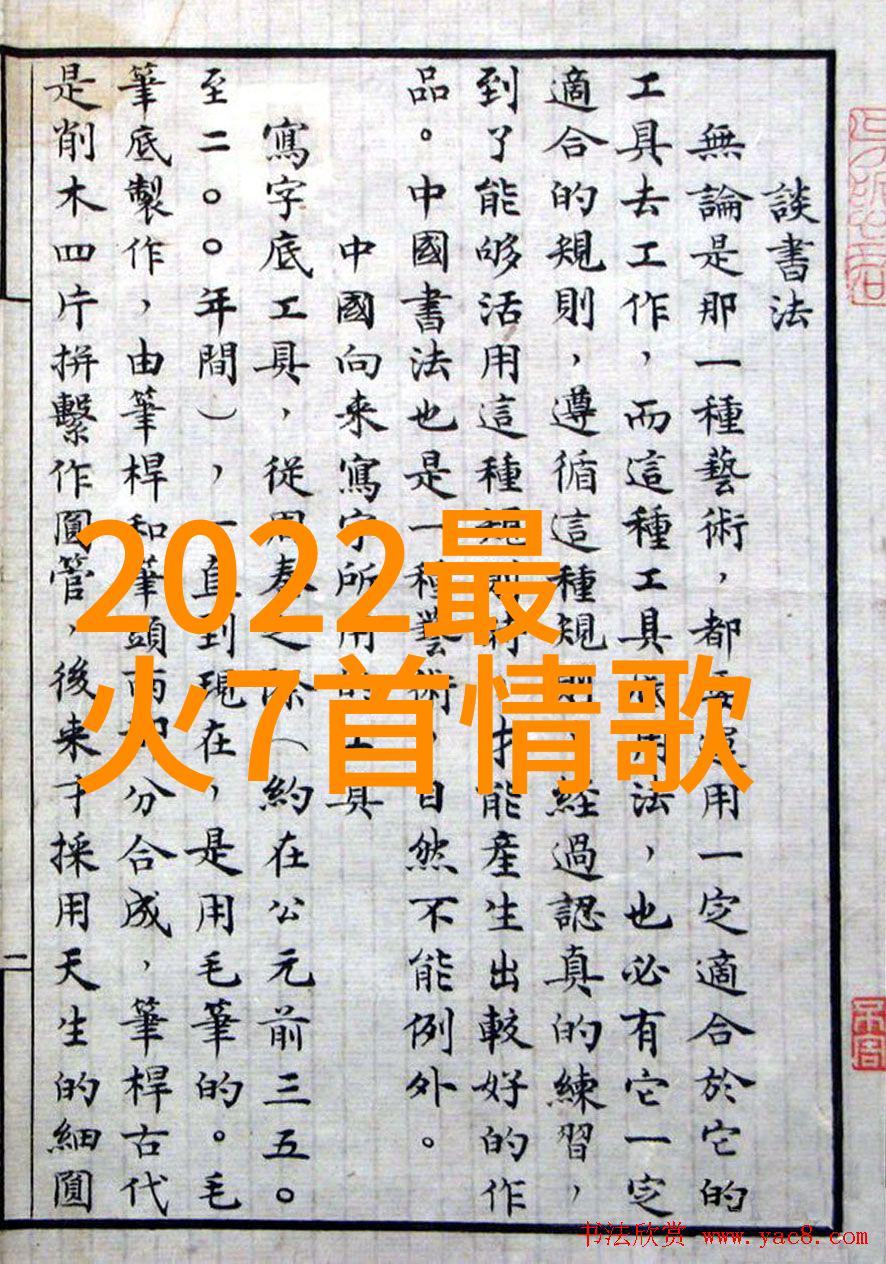 談書法
無論是那一種藝術，都用一定適合於它的
工具去工作，而這種工具用法，也必有它一定
適合的規則，遵循這種規則，經過認真的練習，
到了能够活用這種規則才能產生出較好的作
品。中國書法也是一種藝術，自然不能例外。
中國向来寫字所用的工具
寫字底工具，從周（約在公元前三五〇
至二〇〇年間），一直到現在，是用毛筆的。毛
筆底製作，由筆桿和筆頭兩部分合成，筆桿古代
是削木四片拼繫作圓管，後来才採用天生的細圓
二
2022最
火7首情歌
书法欣赏 www.yac8.com